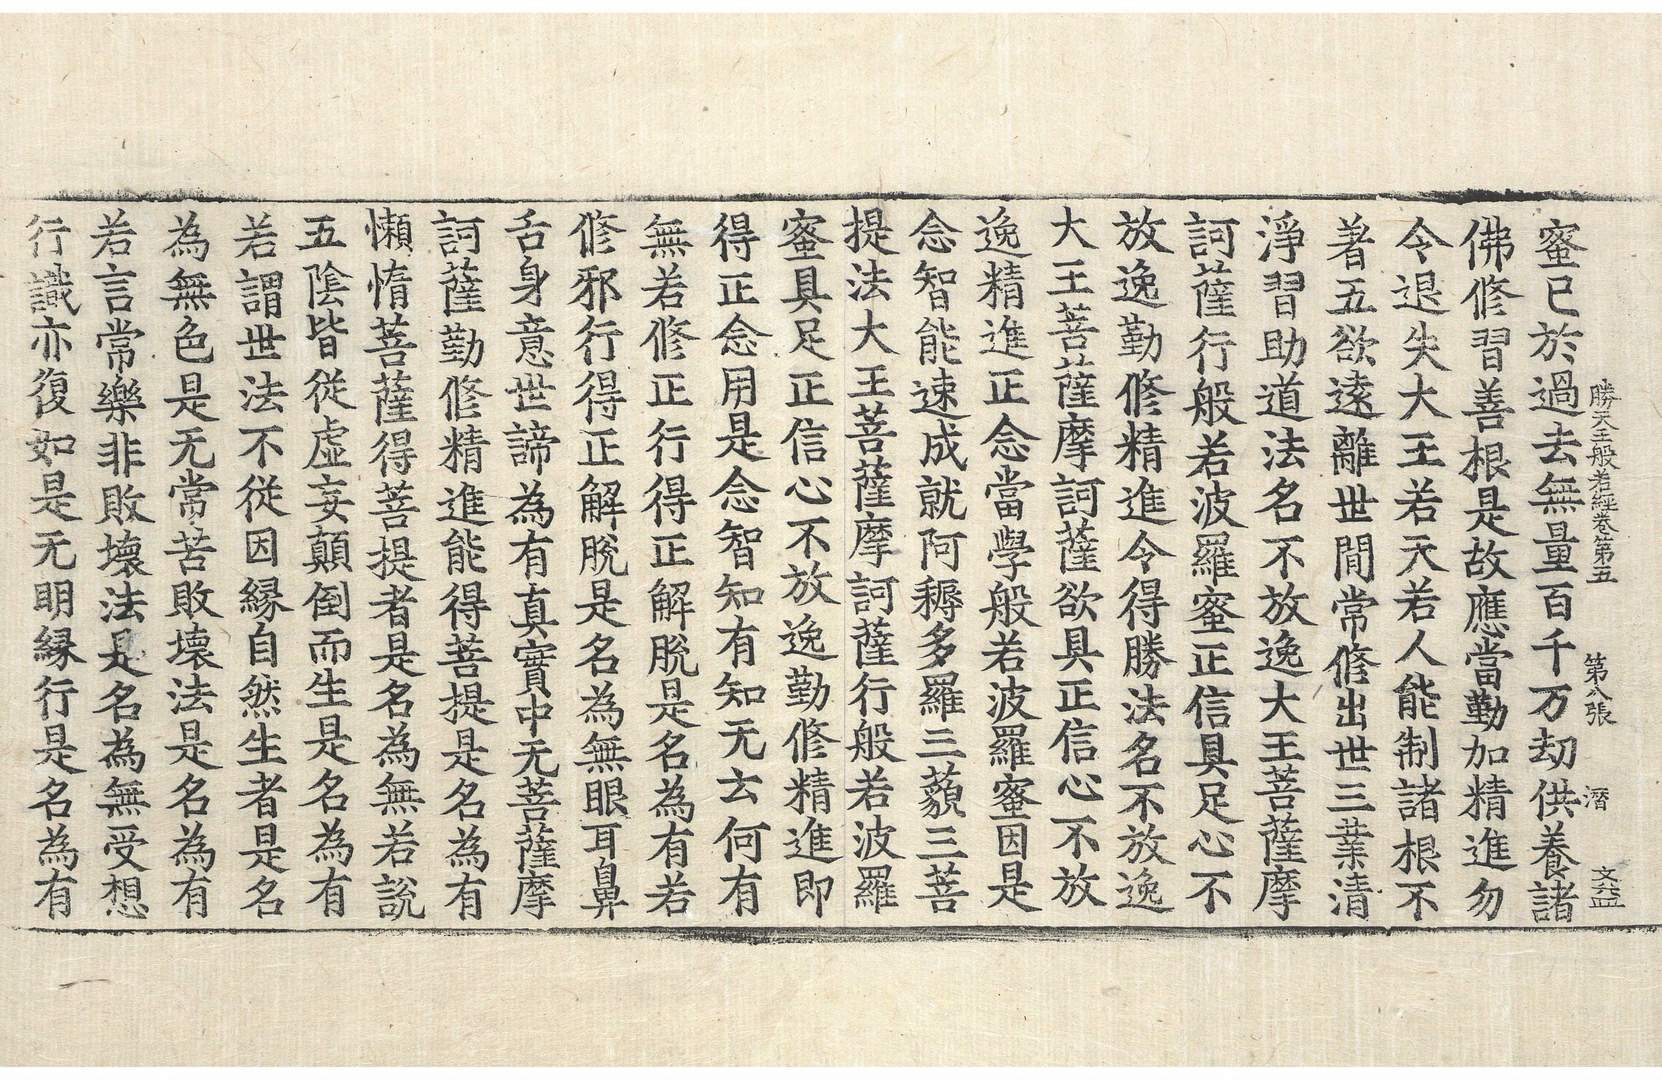 勝天王般若經卷第五　第八張　潛　文益
蜜已於過去無量百千万劫供養諸
佛修習善根是故應當勤加精進勿
令退失大王若天若人能制諸根不
著五欲遠離世間常修出世三業清
淨習助道法名不放逸大王菩薩摩
訶薩行般若波羅蜜正信具足心不
放逸勤修精進令得勝法名不放逸
大王菩薩摩訶薩欲具正信心不放
逸精進正念當學般若波羅蜜因是
念智能速成就阿耨多羅三藐三菩
提法大王菩薩摩訶薩行般若波羅
蜜具足正信心不放逸勤修精進即
得正念用是念智知有知无去何有
無若修正行得正解脫是名為有若
修邪行得正解脫是名為無眼耳鼻
舌身意世諦為有真實中无菩薩摩
訶薩勤修精進能得菩提是名為有
懶惰菩薩得菩提者是名為無若說
五陰皆從虛妄顛倒而生是名為有
若謂世法不從因緣自然生者是名
為無色是无常苦敗壞法是名為有
若言常樂非敗壞法是名為無受想
行識亦復如是无明緣行是名為有